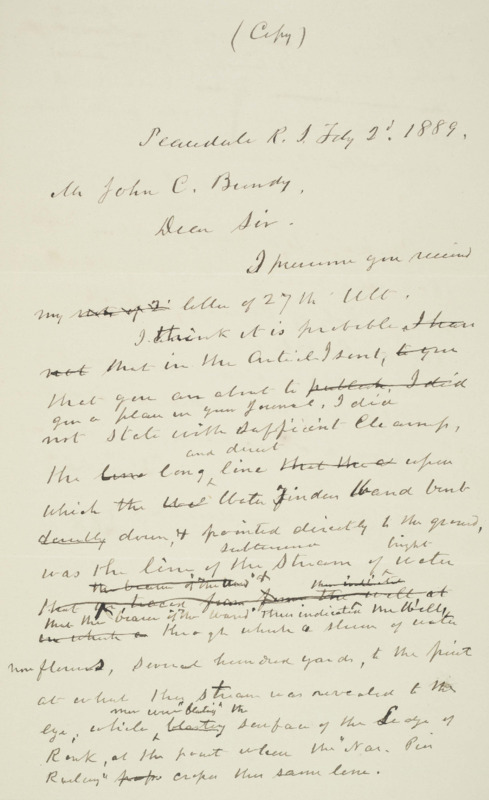 (Copy)
Peacedale R. I. Feby 2d. 1889.
Mr John C. Bundy,
Dear Sir.
I presume you received
my note of letter of 27th Ult.
I think it is probable, I have
not that in the Article I sent, to you
that you are about to publish, I did
give a place in your Journal, I did
not state with sufficient clearness,
and direct
the line long line that the upon
which the Water Finders Wand bent
directly down, & pointed directly to the ground,
subterranean bright
was the line of the stream of water
the bearer of the Wand & then indicated
that he traced from from the well, at
that the "bearer of the Wand" then indicated the Well,
in which a through which a stream of water
now flows, several hundred yards, to the point
at what this stream was revealed to the
men were "blasting" the
eye, while blasting surface of the Ledge of
Rock, at the point where the "Nar. Pier
Railway" crosses this same line.